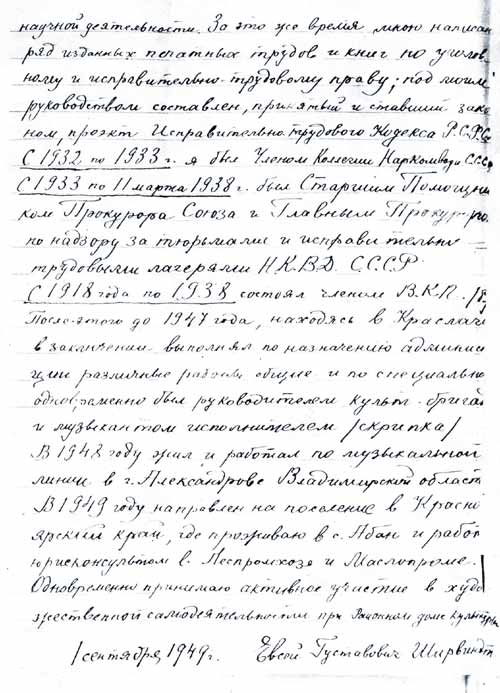 научной деятельности. За это же время мною написан
ряд изданных печатных трудов и книг по уголов
ному и исправительно-трудовому праву; под моим
руководством составлен, принятый и ставший зако
ном, проэкт Исправительно трудового Кодекса Р.С.Ф.С.
С 1932 по 1933 г. я был Членом Коллегии Наркомвода С.С.С.
С 1933 по 11 марта 1938 г. был Старшим Помощни
ком Прокурора Союза и Главным Прокурором
по надзору за тюрьмами и исправительно
трудовыми лагерями Н.К.В.Д. С.С.С.Р.
С 1918 года по 1938 состоял членом В.К.П.
После этого до 1947 года, находясь в Краслаге
в заключении выполнял по назначению админис
ции различные работы общие и по специально
одновременно был руководителем культ-брига
и музыкантом исполнителем /скрипка/
В 1948 году жил и работал по музыкальной
линии в г. Александрове Владимирской област
В 1949 году направлен на поселение в Красно
ярский край, где проживаю в с. Абан и работ
юрисконсультом в Леспромхозе и Маслопроме.
Одновременно принимаю активное участие в худо
жественной самодеятельности при Районном доме культуры
1 сентября, 1949 г. Евсей Густавович Ширвиндт